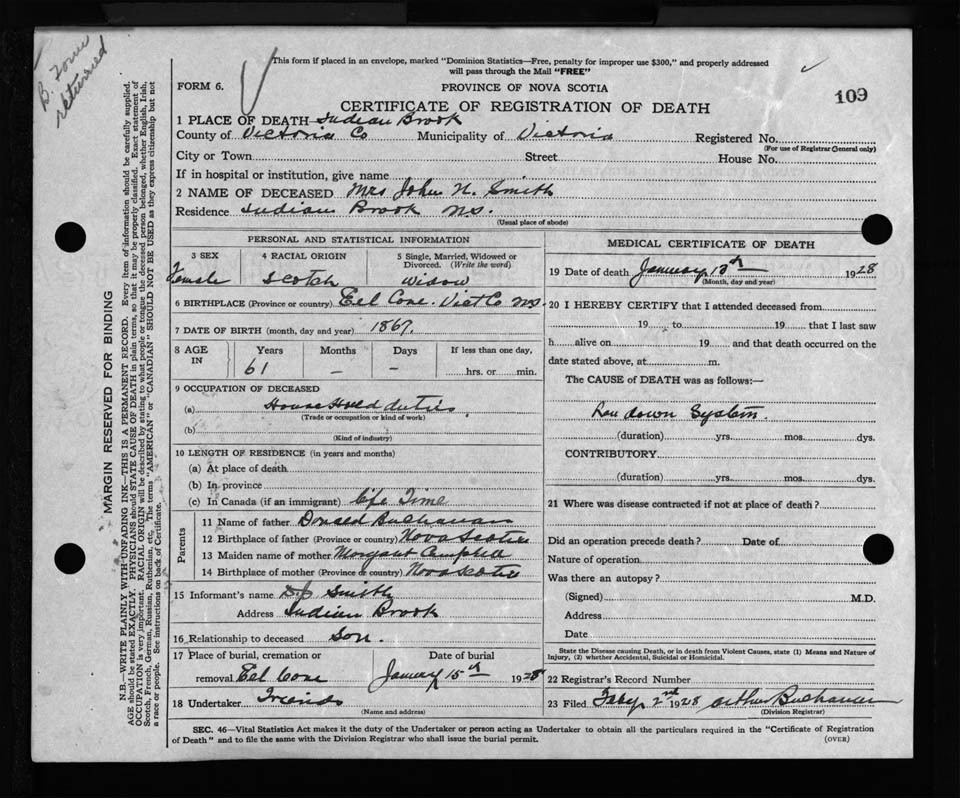 B. Form
returned
This form if placed in an envelope, marked "Dominion Statistics—Free, penalty for improper use $300," and properly addressed
will pass through the Mail "FREE"
FORM 6.
PROVINCE OF NOVA SCOTIA
109
CERTIFICATE OF REGISTRATION OF DEATH
1 PLACE OF DEATH Indian Brook
County of Victoria Co Municipality of Victoria Registered No.
(For use of Registrar General only)
City or Town Street House No.
If in hospital or institution, give name
2 NAME OF DECEASED Mrs John N. Smith
Residence Indian Brook NS.
(Usual place of abode)
MARGIN RESERVED FOR BINDING
N.B.—WRITE PLAINLY WITH UNFADING INK—THIS IS A PERMANENT RECORD. Every item of information should be carefully supplied.
AGE should be stated EXACTLY. PHYSICIANS should STATE CAUSE OF DEATH in plain terms, so that it may be properly classified. Exact statement of
OCCUPATION is very important. RACIAL ORIGIN will be described by stating to what people or tongue the deceased person belonged, whether English, Irish,
Scotch, French, German, Russian, Ruthenian, etc. The terms "AMERICAN" or "CANADIAN" SHOULD NOT BE USED as they express citizenship but not
a race or people. See instructions on back of Certificate.
PERSONAL AND STATISTICAL INFORMATION
3 SEX 4 RACIAL ORIGIN 5 Single, Married, Widowed or
Divorced. (Write the word)
Female Scotch Widow
6 BIRTHPLACE (Province or country) Eel Cove. Vict Co NS.
7 DATE OF BIRTH (month, day and year) 1867.
8 AGE
IN
Years Months Days If less than one day,
61 – – hrs. or min.
9 OCCUPATION OF DECEASED
(a) House Hold duties
(Trade or occupation or kind of work)
(b)
(Kind of industry)
10 LENGTH OF RESIDENCE (in years and months)
(a) At place of death
(b) In province
(c) In Canada (if an immigrant) Life Time
Parents
11 Name of father Donald Buchanan
12 Birthplace of father (Province or country) Nova Scotia
13 Maiden name of mother Morgaret Campbell
14 Birthplace of mother (Province or country) Nova Scotia
15 Informant's name Smith
Address Indian Brook
16 Relationship to deceased Son.
17 Place of burial, cremation or Date of burial
removal Eel Cove January 15th 1928
18 Undertaker Friends
(Name and address)
MEDICAL CERTIFICATE OF DEATH
19 Date of death January 13th 1928
(Month, day and year)
20 I HEREBY CERTIFY that I attended deceased from
19 to 19 that I last saw
h alive on 19 and that death occurred on the
date stated above, at m.
The CAUSE of DEATH was as follows:—
Run down System.
(duration) yrs. mos. dys.
CONTRIBUTORY
(duration) yrs. mos. dys.
21 Where was disease contracted if not at place of death?
Did an operation precede death? Date of
Nature of operation
Was there an autopsy?
(Signed) M.D.
Address
Date
State the Disease causing Death, or in death from Violent Causes, state (1) Means and Nature of
Injury, (2) whether Accidental, Suicidal or Homicidal.
22 Registrar's Record Number
23 Filed Feby 2nd 1928 Arthur Buchanan
(Division Registrar)
SEC. 46—Vital Statistics Act makes it the duty of the Undertaker or person acting as Undertaker to obtain all the particulars required in the "Certificate of Registration
of Death" and to file the same with the Division Registrar who shall issue the burial permit.
(OVER)